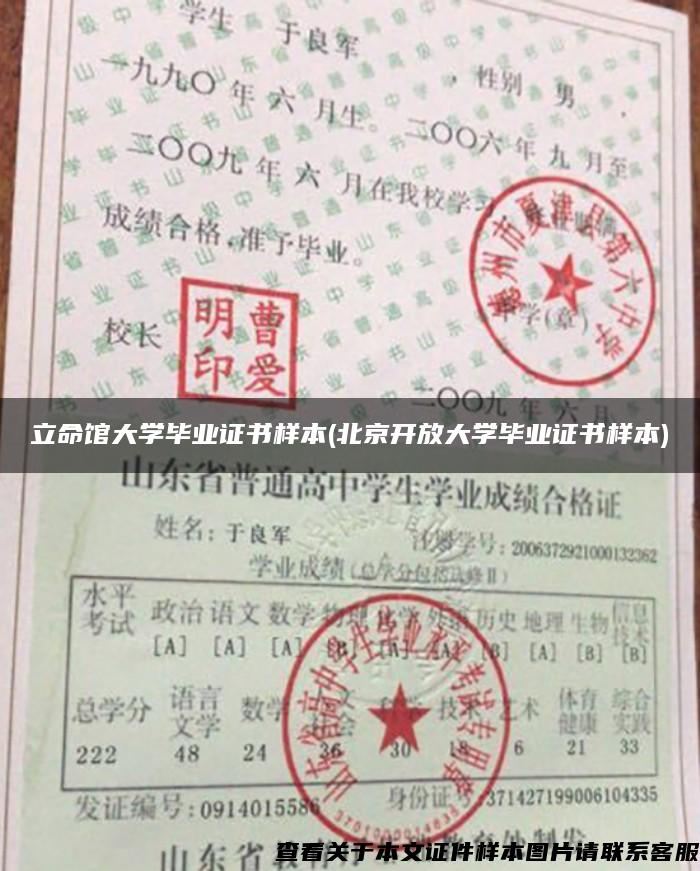 学生 于良军 ，性别 男
一九九〇 年 六 月生。二〇〇六 年 九 月至
二〇〇九 年 六 月在我校学习
成绩合格，准予毕业。
校长
曹爱明印
夏津县第六中学
学(章)
二〇〇九 年 六 月
立命馆大学毕业证书样本(北京开放大学毕业证书样本)
山东省普通高中学生学业成绩合格证
姓名：于良军 注册学号：2006372921000132362
学业成绩(总学分包括选修Ⅱ)
水平考试 政治 语文 数学 物理 化学 外语 历史 地理 生物 信息技术
[A] [A] [A] [B] [A] [B] [A] [B] [B]
总学分 语言文学 数学 科学 技术 艺术 体育健康 综合实践
222 48 24 36 30 18 6 21 33
山东省普通高中学生学业水平考试专用章
发证编号：0914015586 身份证号：371427199006104335
山东省
查看关于本文证件样本图片请联系客服